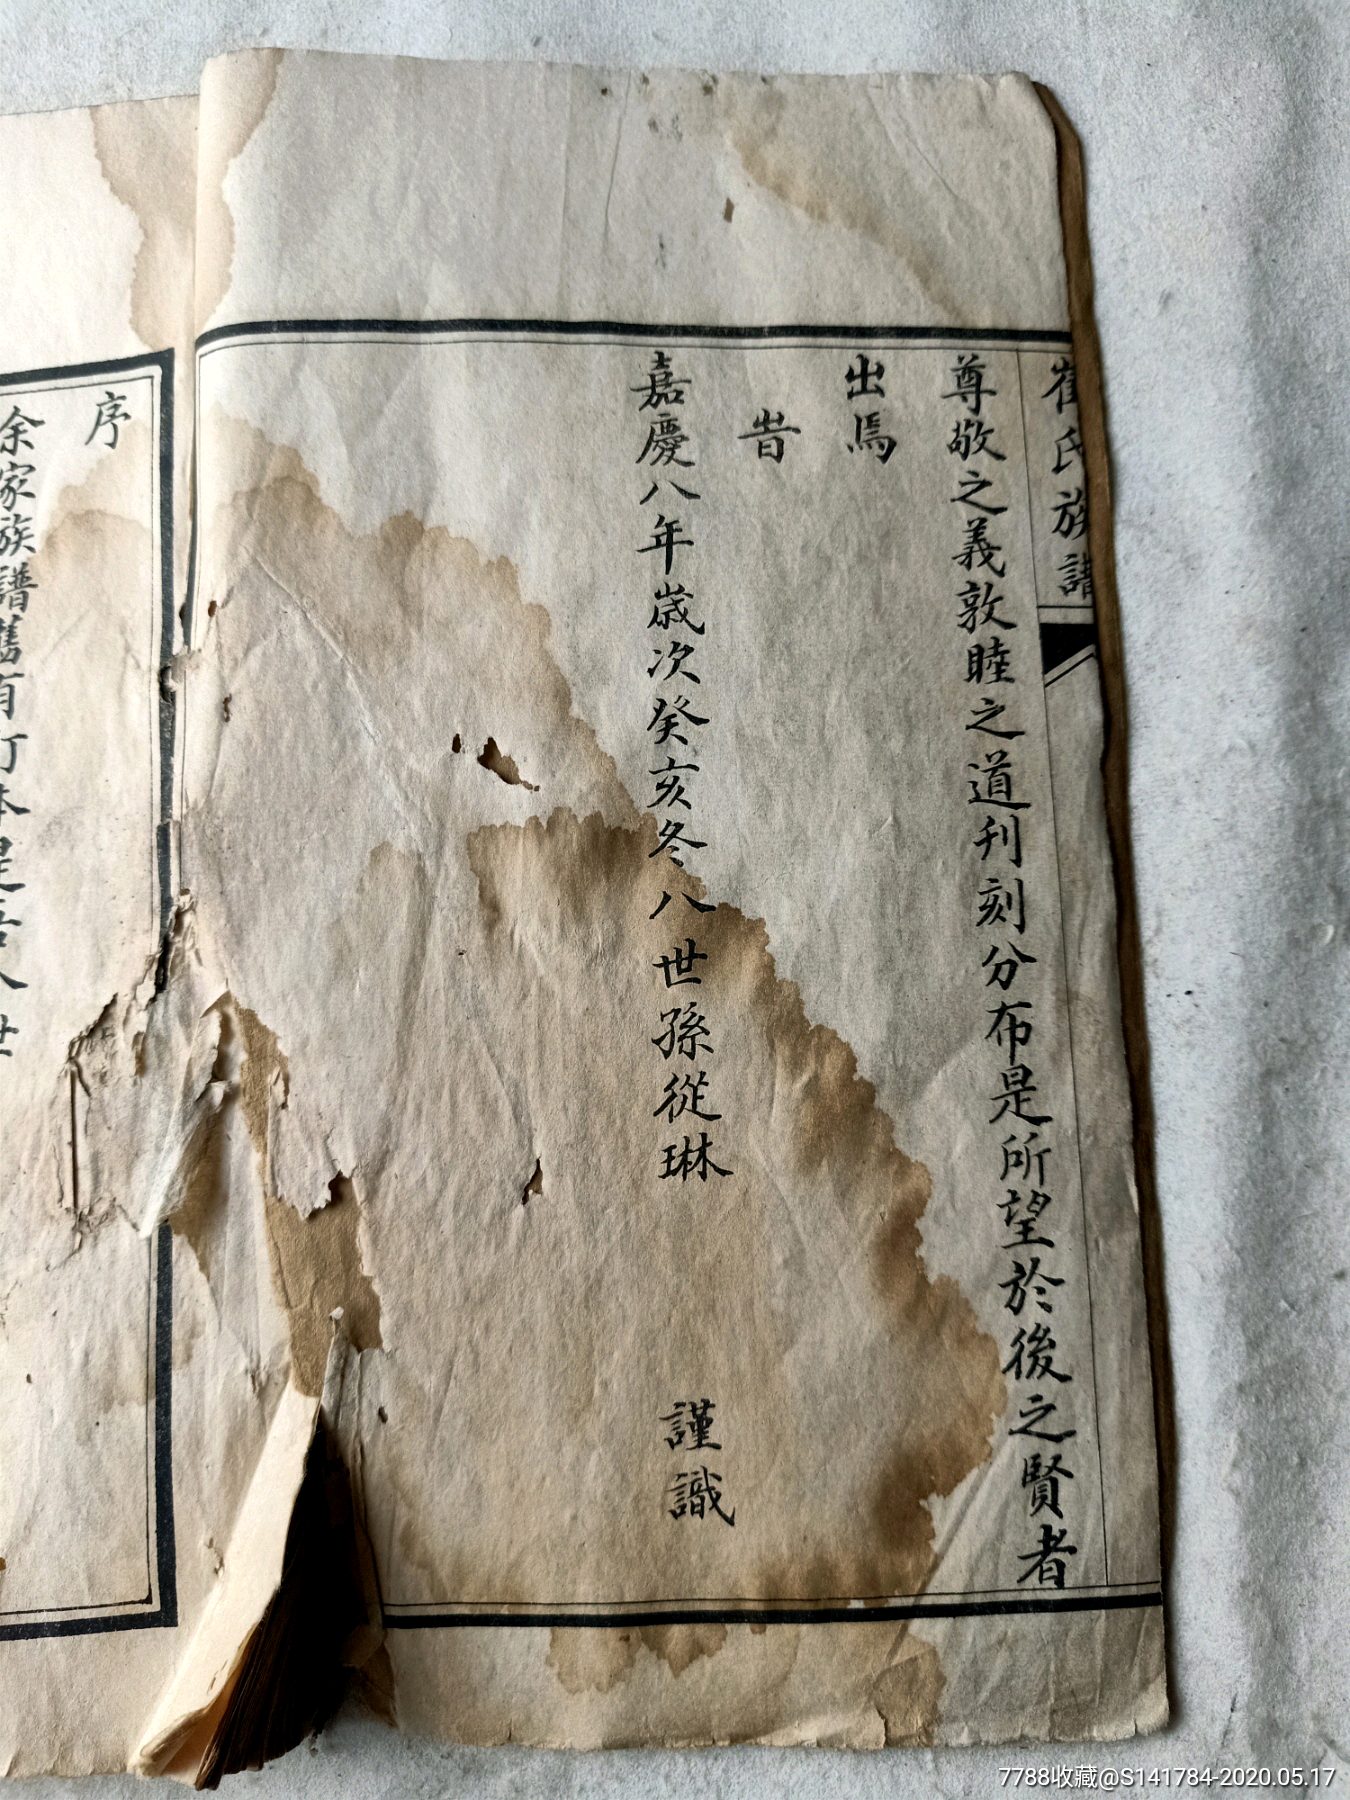 崔氏族譜
尊敬之義敦睦之道刊刻分布是所望於後之賢者
出焉
旹
嘉慶八年歲次癸亥冬八世孫從琳 謹識
序
余家族譜舊有
7788收藏@S141784-2020.05.17